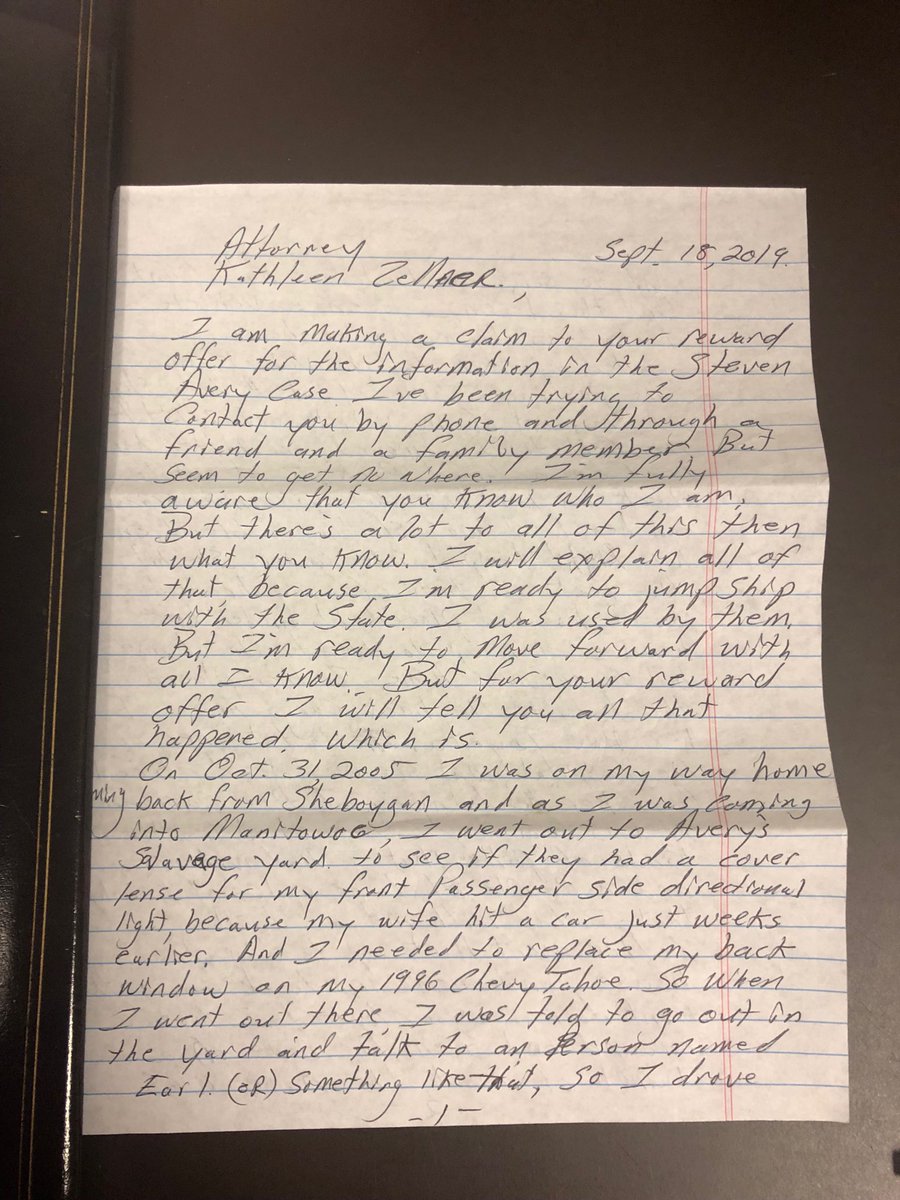 Attorney Sept. 18, 2019.
Kathleen Zellner.,
I am making a claim to your reward
offer for the information in the Steven
Avery Case. I've been trying to
Contact you by phone and through a
friend and a family member. But
seem to get no where. I'm fully
aware that you know who I am.
But there's a lot to all of this then
what you know. I will explain all of
that, because I'm ready to jump ship
with the State. I was used by them.
But I'm ready to move forward with
all I know. But for your reward
offer I will tell you all that
happened. Which is.
On Oct. 31, 2005 I was on my way home
back from Sheboygan and as I was coming
into Manitowoc, I went out to Avery's
Salavege yard to see if they had a cover
lense for my front Passenger side directional
light, because my wife hit a car just weeks
earlier. And I needed to replace my back
window on my 1996 Chevy Tahoe. So When
I went out there, I was told to go out in
the yard and talk to an Person named
Earl. (OR) Something like that, So I drove
-1-